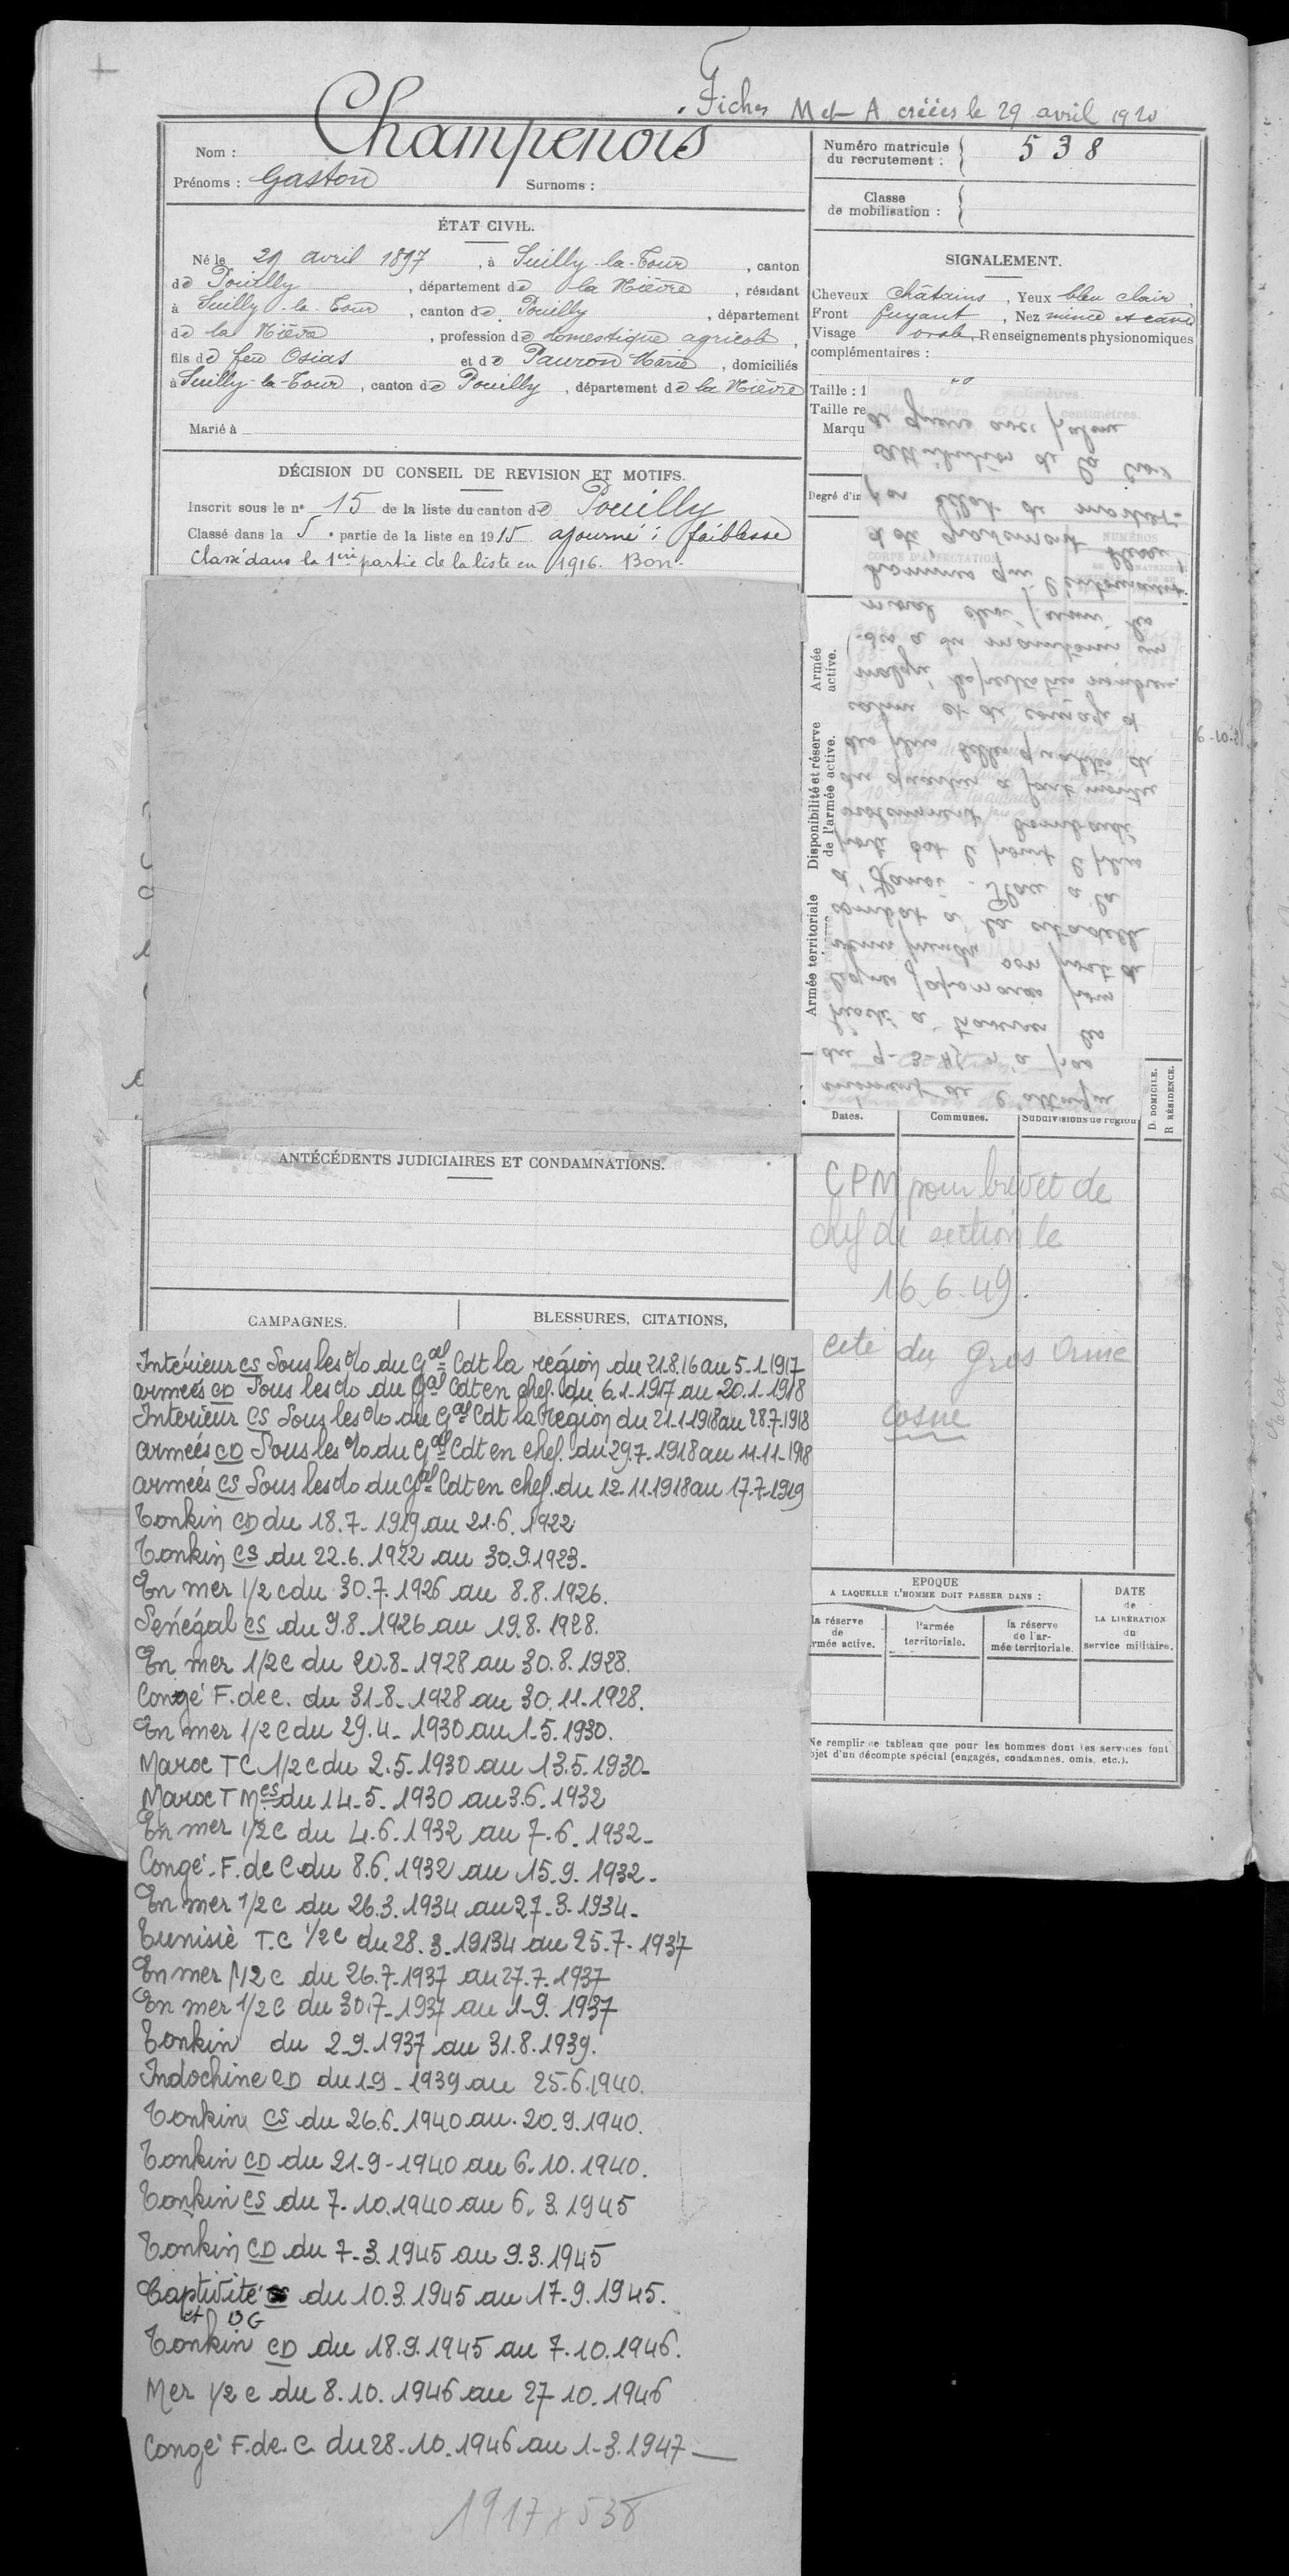 Fiches M et A créées le 29 avril 1920
Nom : Champenois
Prénoms : Gaston Surnoms :
Numéro matricule du recrutement : 538
Classe de mobilisation :
ÉTAT CIVIL.
Né le 29 avril 1897, à Suilly-la-Tour, canton
de Pouilly, département de la Nièvre, résidant
à Suilly-la-Tour, canton de Pouilly, département
de la Nièvre, profession de domestique agricole,
fils de feu Osias et de Pauron Marie, domiciliés
à Suilly-la-Tour, canton de Pouilly, département de la Nièvre
Marié à
SIGNALEMENT.
Cheveux châtains, Yeux bleu clair,
Front fuyant, Nez mince et cave
Visage ovale, Renseignements physionomiques
complémentaires :
Taille : 1
Taille re
Marqu
Degré d'in
DÉCISION DU CONSEIL DE REVISION ET MOTIFS.
Inscrit sous le n° 15 de la liste du canton de Pouilly
Classé dans la 5e partie de la liste en 1915 ajourné : faiblesse
Classé dans la 1ère partie de la liste en 1916. Bon.
moment de l'attaque
du 9-3-45 n'a pas
hésité à traverser les
lignes japonaises pour
venir prendre son poste de
combat à la citadelle
d'Hanoi - Placé à la
porte Est le point le plus
violemment bombardé
du quartier a fait montre
des plus belles qualités de
calme et de courage et
malgré les pertes très nombreu-
-ses a su maintenir un
moral élevé parmi les
hommes qui l'entouraient.
a été gravement blessé
par éclat de mortier.
Attribution de la Croix
de guerre avec palme
Armée active.
Disponibilité et réserve de l'armée active.
Armée territoriale
Dates. Communes. Subdivisions de région
D. DOMICILE.
R. RÉSIDENCE.
CPM pour brevet de
chef de section le
16.6.49.
cité du Gros Orme
Cosne
ANTÉCÉDENTS JUDICIAIRES ET CONDAMNATIONS.
CAMPAGNES.
BLESSURES, CITATIONS,
Intérieur CS Sous les o/o du Gal Cdt la région du 21.8.16 au 5-1-1917
armées CD Sous les o/o du Gal Cdt en chef. du 6.1-1917 au 20.1-1918
Interieur CS Sous les o/o du Gal Cdt la Région du 21.1.1918 au 28.7.1918
armées CD Sous les o/o du Gal Cdt en chef. du 29.7.1918 au 11-11-1918
armées CS Sous les o/o du Gal Cdt en chef. du 12.11.1918 au 17.7.1919
Tonkin CD du 18.7-1919 au 21.6.1922
Tonkin CS du 22.6.1922 au 30.9.1923-
En mer 1/2 c du 30.7.1926 au 8.8.1926.
Sénégal CS du 9.8.1926 au 19.8.1928.
En mer 1/2 c du 20.8-1928 au 30.8.1928.
Congé F. de C. du 31-8-1928 au 30.11-1928.
En mer 1/2 C du 29.4-1930 au 1-5.1930.
Maroc TC 1/2 c du 2.5-1930 au 13.5.1930-
Maroc TM CS du 14-5.1930 au 3.6.1932
En mer 1/2 C du 4.6.1932 au 7-6.1932-
Congé-F. de C du 8.6.1932 au 15.9.1932-
En mer 1/2 c du 26.3.1934 au 27-3.1934-
Tunisie T.C 1/2 c du 28.3.19134 au 25.7-1937
En mer 1/2 c du 26.7-1937 au 27.7.1937
En mer 1/2 C du 30.7-1937 au 1-9.1937
Tonkin du 2.9.1937 au 31.8.1939.
Indochine CD du 1-9-1939 au 25.6.1940.
Tonkin CS du 26.6-1940 au 20.9.1940.
Tonkin CD du 21-9-1940 au 6.10.1940.
Tonkin CS du 7.10.1940 au 6.3.1945
Tonkin CD du 7-3.1945 au 9.3.1945
Captivité du 10.3.1945 au 17-9.1945.
et BG
Tonkin CD du 18.9.1945 au 7.10.1946.
Mer 1/2 c du 8.10.1946 au 27 10.1946
Congé F. de. C du 28-10.1946 au 1-3.1947-
1917 x 538
EPOQUE
A LAQUELLE L'HOMME DOIT PASSER DANS :
la réserve de rmée active.
l'armée territoriale.
la réserve de l'armée territoriale.
DATE de LA LIBÉRATION du service militaire.
Ne remplir ce tableau que pour les hommes dont les services font
objet d'un décompte spécial (engagés, condamnés, omis, etc.).